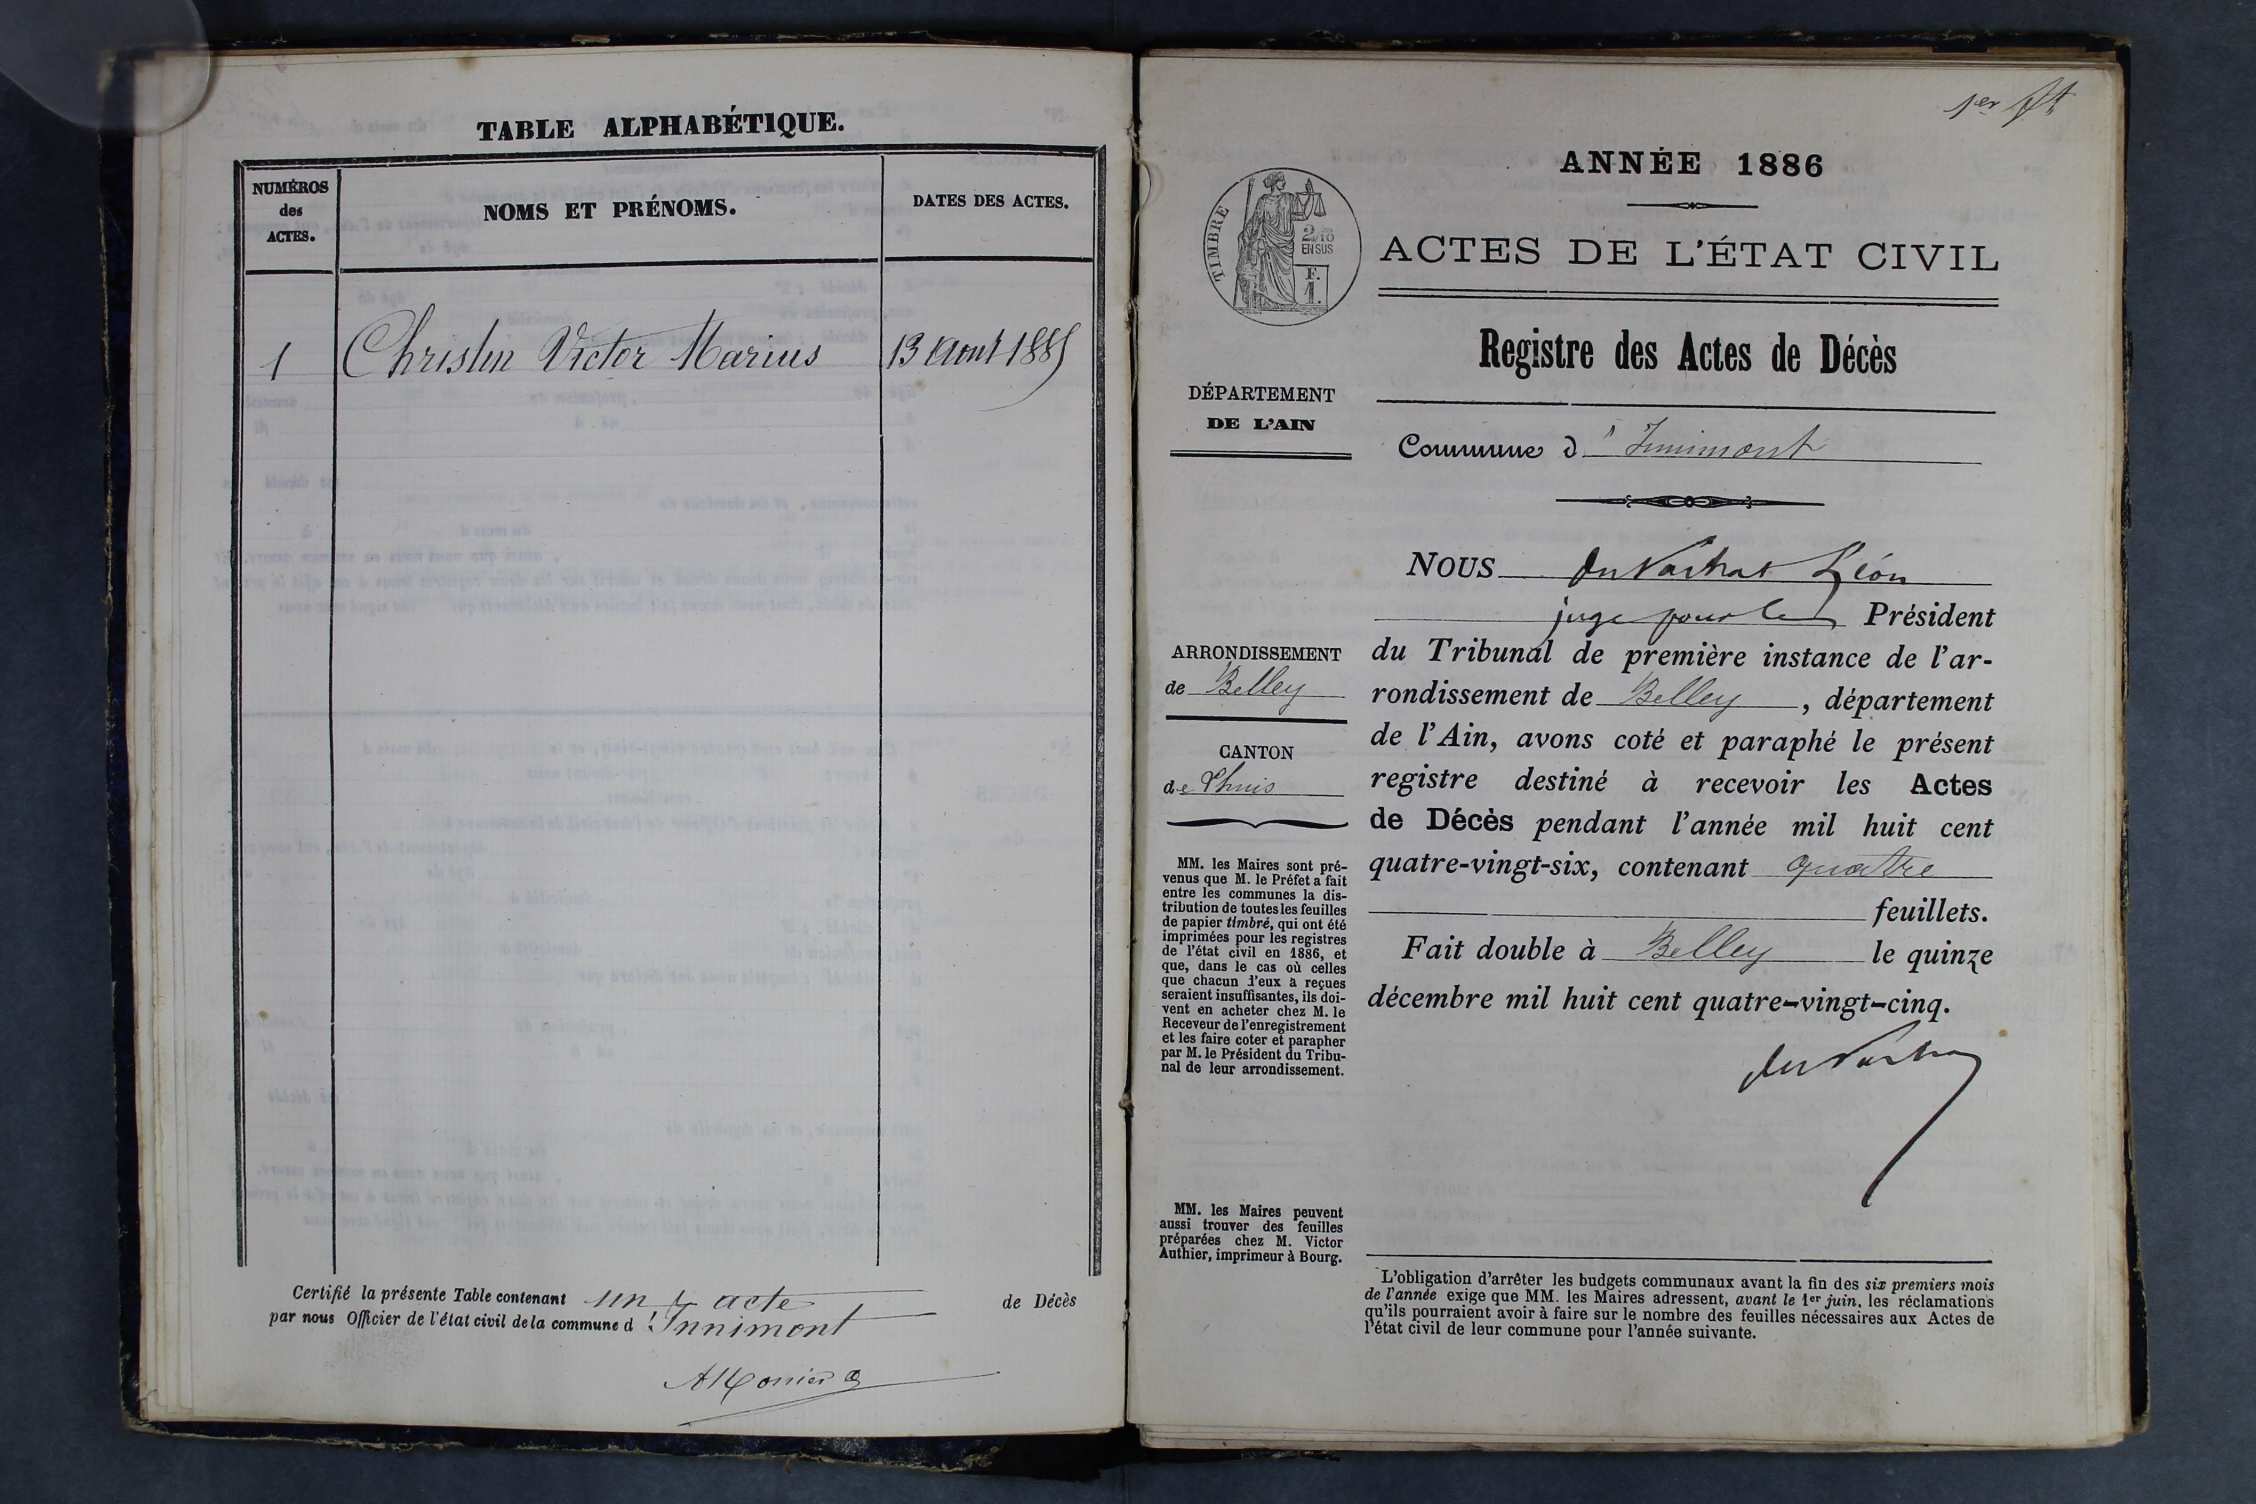 TABLE ALPHABÉTIQUE.
NUMÉROS
des
ACTES.
NOMS ET PRÉNOMS.
DATES DES ACTES.
1 Christin Victor Marius 13 Aout 1885
Certifié la présente Table contenant un acte de Décès
par nous Officier de l'état civil de la commune d'Innimont
AMonier
1er ft
ANNÉE 1886
TIMBRE
2/10
EN SUS
F.
1.
ACTES DE L'ÉTAT CIVIL
Registre des Actes de Décès
DÉPARTEMENT
DE L'AIN
Commune d'Innimont
ARRONDISSEMENT
de Belley
CANTON
de Lhuis
MM. les Maires sont pré-
venus que M. le Préfet a fait
entre les communes la dis-
tribution de toutes les feuilles
de papier timbré, qui ont été
imprimées pour les registres
de l'état civil en 1886, et
que, dans le cas où celles
que chacun d'eux a reçues
seraient insuffisantes, ils doi-
vent en acheter chez M. le
Receveur de l'enregistrement
et les faire coter et parapher
par M. le Président du Tribu-
nal de leur arrondissement.
MM. les Maires peuvent
aussi trouver des feuilles
préparées chez M. Victor
Authier, imprimeur à Bourg.
NOUS Léon
juge pour le Président
du Tribunal de première instance de l'ar-
rondissement de Belley, département
de l'Ain, avons coté et paraphé le présent
registre destiné à recevoir les Actes
de Décès pendant l'année mil huit cent
quatre-vingt-six, contenant quatre
feuillets.
Fait double à Belley le quinze
décembre mil huit cent quatre-vingt-cinq.
L'obligation d'arrêter les budgets communaux avant la fin des six premiers mois
de l'année exige que MM. les Maires adressent, avant le 1er juin, les réclamations
qu'ils pourraient avoir à faire sur le nombre des feuilles nécessaires aux Actes de
l'état civil de leur commune pour l'année suivante.